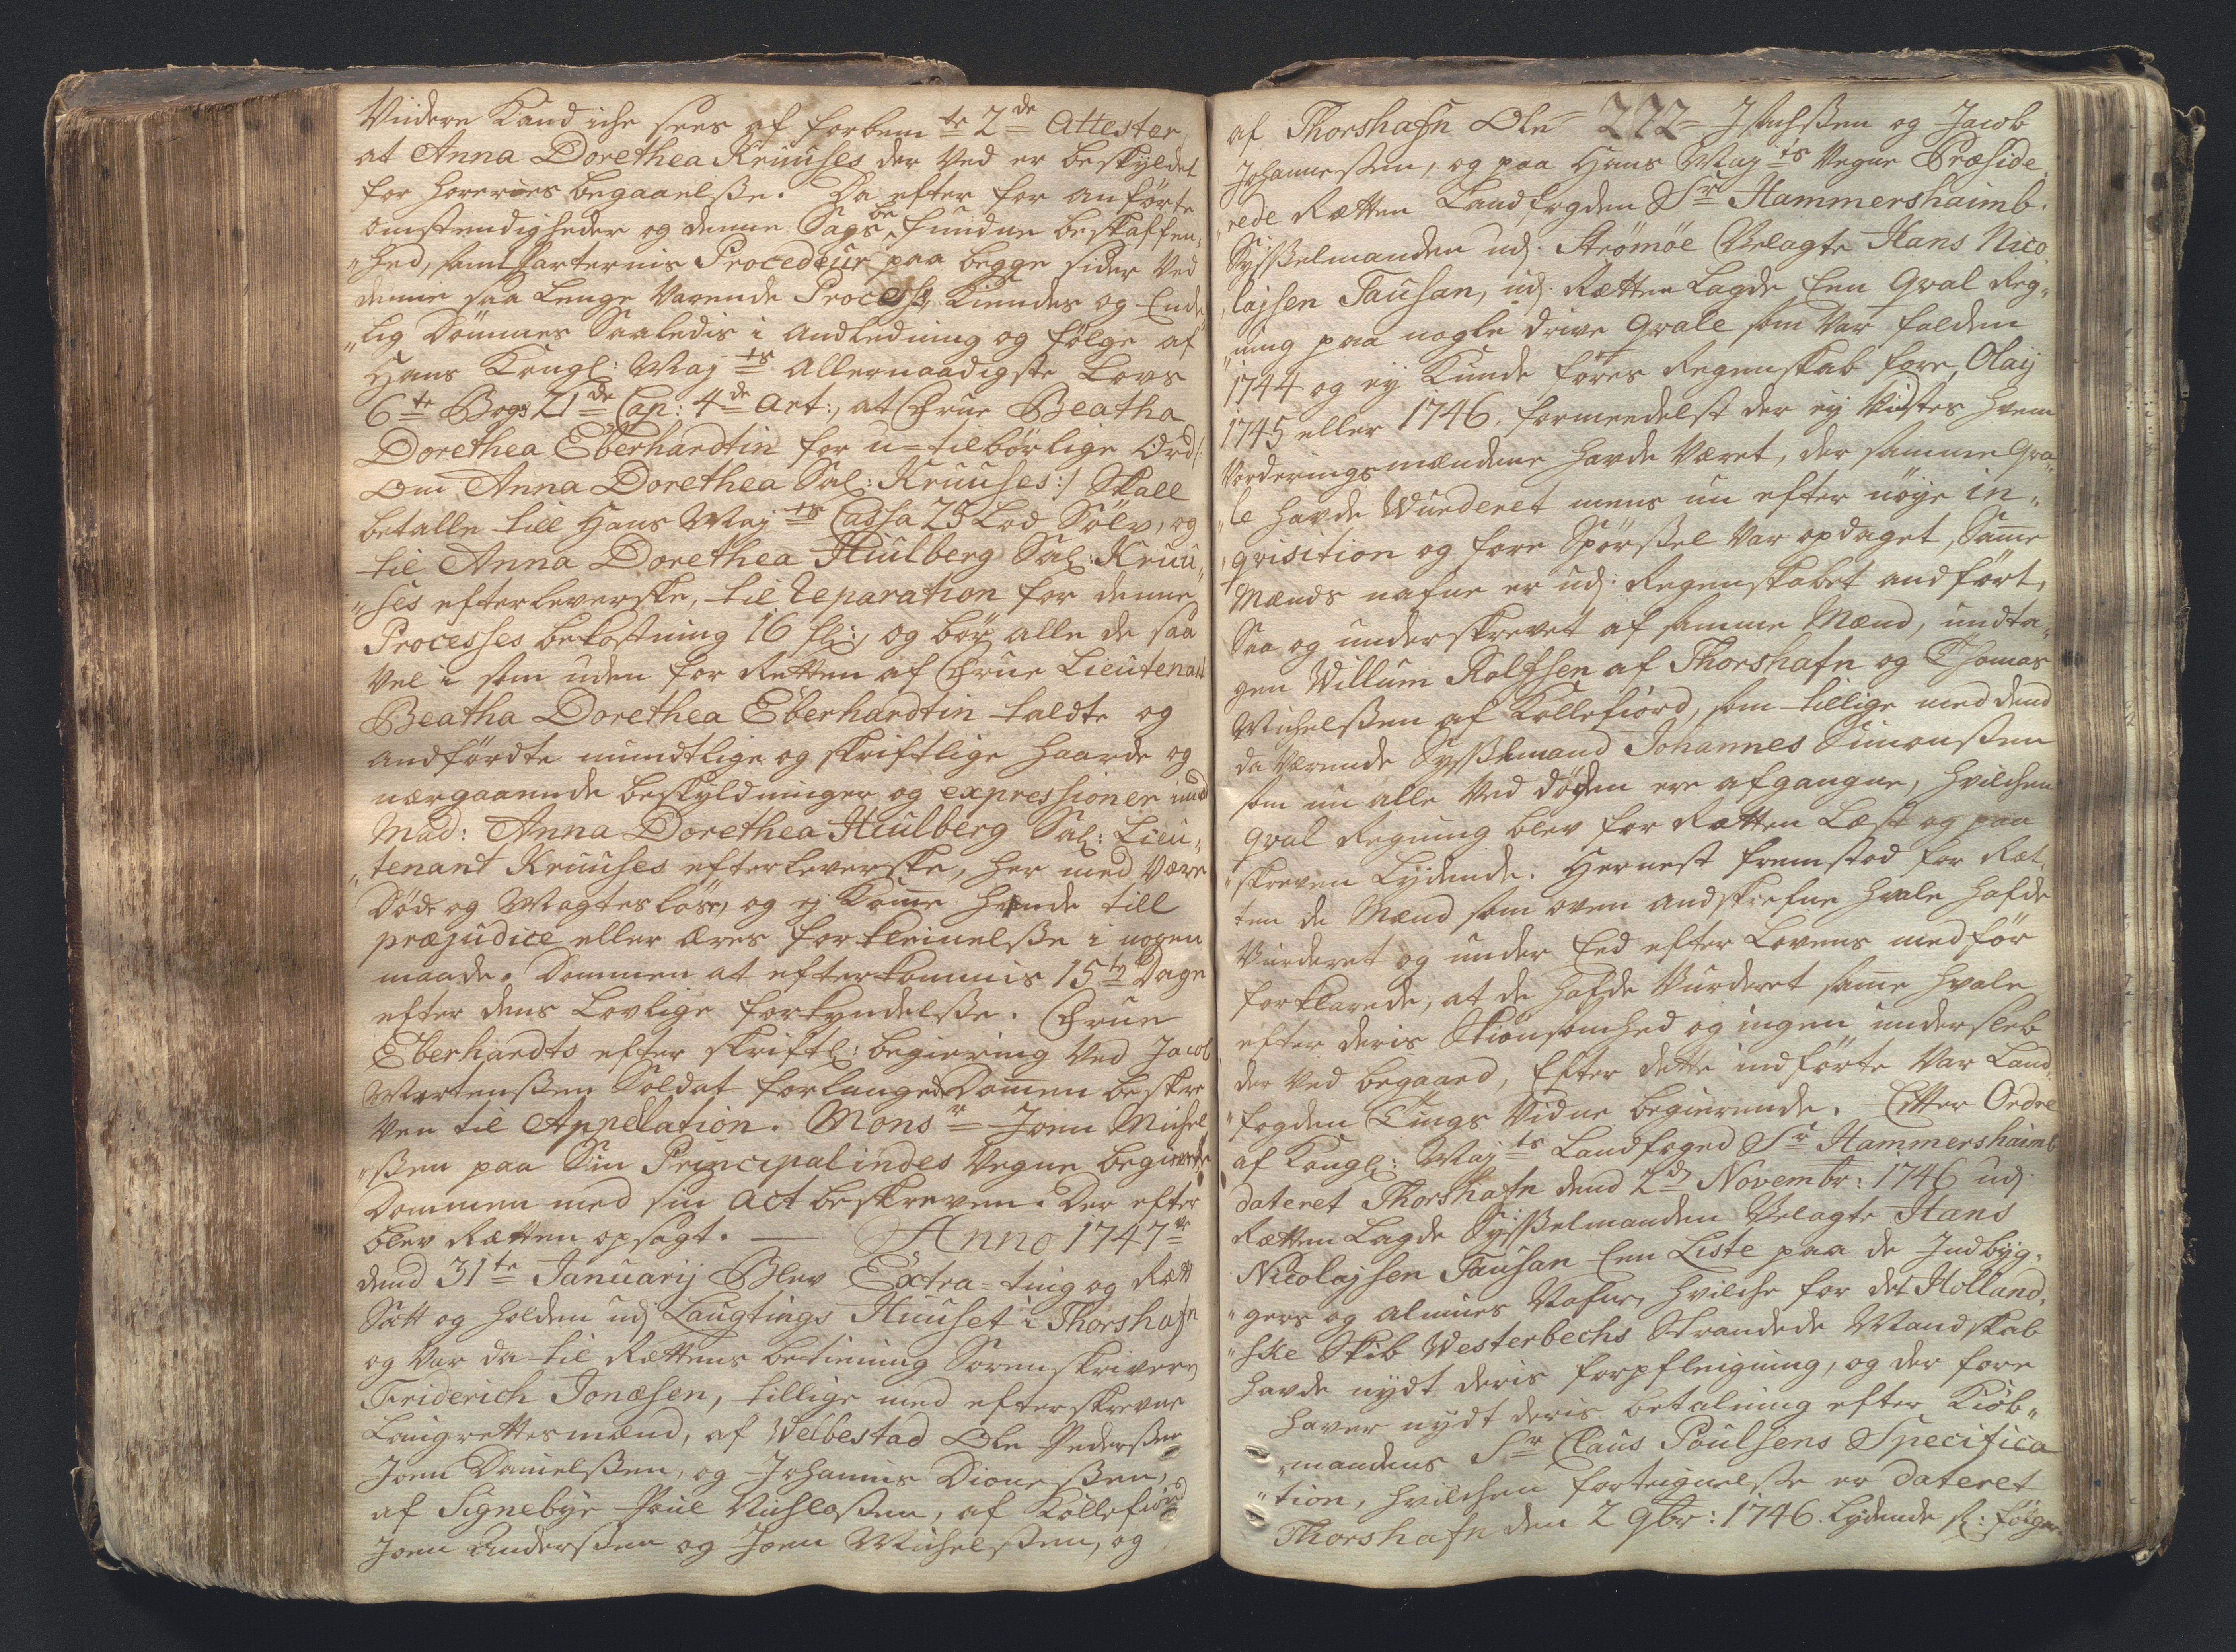 Viidere Kand iche sees af forbem te 2de Attester
at Anna Dorethea Kruuses der ved er beskyldet
for horeries begaaelsse. Da efter for anförte
omstendigheder og denne Sags be fundne beskaffen,,
,,hed, samt parternis Procedeur paa begge sider ved
denne saa lenge varende Process, Kiendes og Ende
,,lig Dömmes Saaledis i andledning og følge af
Hans Kongl: May ts Allernaadigste Lovs
6te Bogs 21de Cap: 4de Art:, at Frue Beatha
Dorethea Eberhardtin for u=tilbörlige Ord /:
Om Anna Dorethea Sal: Kruuses :/ Skall
betalle till Hans May ts Cassa 25 Lod Sölv, og
til Anna Dorethea Hiulberg Sal: Kruu,,
,,ses efterleverske, til Reparation for denne
Processes bekostning 16 fl:, og bör alle de saa
vel i som uden for Retten af Frue Lieutenant
Beatha Dorethea Eberhardtin taldte og
andfördte mundtlige og skriftlige haarde og
nærgaaende beskyldninger og expressioner imod
Mad: Anna Dorethea Hiulberg Sal: Lieu,,
,,tenant Kruuses efterleverske, her med være
Döde og Magteslöse, og ej Komme hende till
præjudice eller æres forkleinelsse i nogen
maade. Dommen at efterkommis 15ten Dage
efter dens Lovlige forkyndelsse. Frue
Eberhardts efter skriftl: begiering ved Jacob
Mortenssen Soldat forlangede Domen beskre
ven til Appellation. Monsr Joen Michel
,,ssen paa Sin Principalindes Vegne begierede
Dommen med sin act beskreven. Der efter
blev Rætten opsagt. — Anno 1747de
dend 31te Januarij Blev Extra=ting og Rætt
Satt og holden udj Laugtings Huuset i Thorshafn
og var da til Rættens betiening Sorenskriveren
Friderich Jonæsen, tillige med efterskrevne
Laugrettesmænd, af Welbestad Ole Pederssen
Joen Danielssen, og Johannis Dionessen,
af Signebye Poul Nichlassen, af Kollefiord
Joen Anderssen og Joen Michelssen, og
af Thorshafn Ole 272 Isachssen og Jacob
Johannessen, og paa Hans May ts Vegne Præside
,,rede Rætten Landfogden Sr Hammershaimb.
Sysselmanden udj Strömöe Velagte Hans Nico
,,lajsen Tausan, udj Rætten Lagde Een Qval Reg,,
,,ning paa nogle drive Qvale som var falden
1744 og ey Kunde föres Regenskab fore, Olaij
1745 eller 1746. formeedelst der ey vidstes hvem
Vorderingsmændene havde været, der samme Qva,,
,,le havde Wurderet mens nu efter nöye in,,
,,qvisition og fore Spörssel var opdaget, Same
Mænds nafne er udj Regenskabet andfört,
Saa og underskrevet af samme Mænd, undta,,
gen Willum Rolfsen af Thorshafn og Thomas
Michelssen af Kollefiord, som tillige med dend
da værende Sysselmand Johannes Simonssen
som nu alle ved döden ere afgangne, hvilchen
Qval Regning blev for Rætten Læst og paa
,,skreven Lydende. Hernest fremstod for Ræt,,
ten de Mænd som oven andskrefne hvale hafde
Vurderet og under Eed efter Lovens medför
forklarede, at de hafde Vurderet same hvale
efter deris Skiönsomhed og ingen undersleb
der ved begaaed, Efter dette indförte var Land,,
,,fogden Tings Vidne begierende. Efter Ordre
af Kongl: May ts Landfoged Sr Hammershaimb
dateret Thorshafn dend 2d Novembr: 1746 udj
Rætten Lagde Sysselmanden Velagte Hans
Nicolajsen Tausan Een Liste paa de Indbyg,,
,,gers og almues Nafne, hvilche for det Holland,,
,,ske Skib Westerbechs Strandede Mandskab
havde nydt deris forpfleigning, og der fore
haver nydt deris betalning efter Kiöb,,
,,mandens Sr Claus Poulsens Specifica
,,tion, hvilchen forteignelsse er dateret
Thorshafn den 2 9br: 1746. Lydende s: fölger